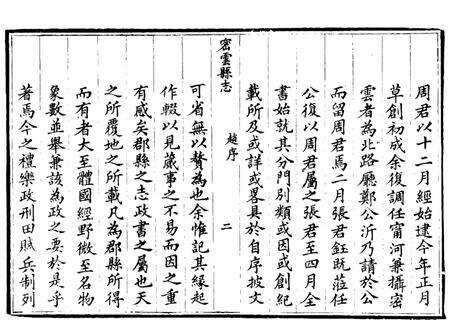 周君以十二月經始逮今年正月
草創初成余復調任甯河兼攝密
雲者為北路廳鄭公沂乃請於公
而留周君焉二月張君鈺既蒞任
公復以周君屬之張君至四月全
書始就其分門別類或因或創紀
載所及或詳或畧具於自序披文
密雲縣志 趙序 二
可省無以贅為也余惟記其緣起
作輟以見蕆事之不易而因之重
有感矣郡縣之志政書之屬也天
之所覆地之所載凡為郡縣所得
而有者大至體國經野微至名物
象數並舉兼該為政之要於是乎
著焉今之禮樂政刑田賦兵制列